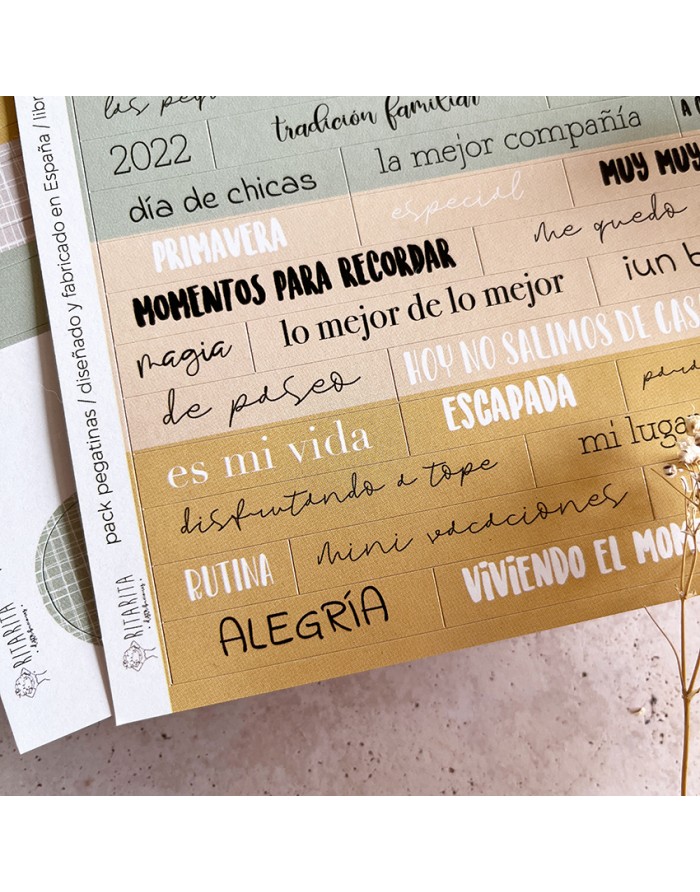 tradición familiar
2022
la mejor compañía
día de chicas
especial
MUY MUY
PRIMAVERA
me quedo
MOMENTOS PARA RECORDAR
¡un b
magia
lo mejor de lo mejor
HOY NO SALIMOS DE CAS
de paseo
ESCAPADA
es mi vida
mi luga
disfrutando a tope
mini vacaciones
RUTINA
VIVIENDO EL MOM
ALEGRÍA
pack pegatinas / diseñado y fabricado en España / libr
RITARITA
RITARITA